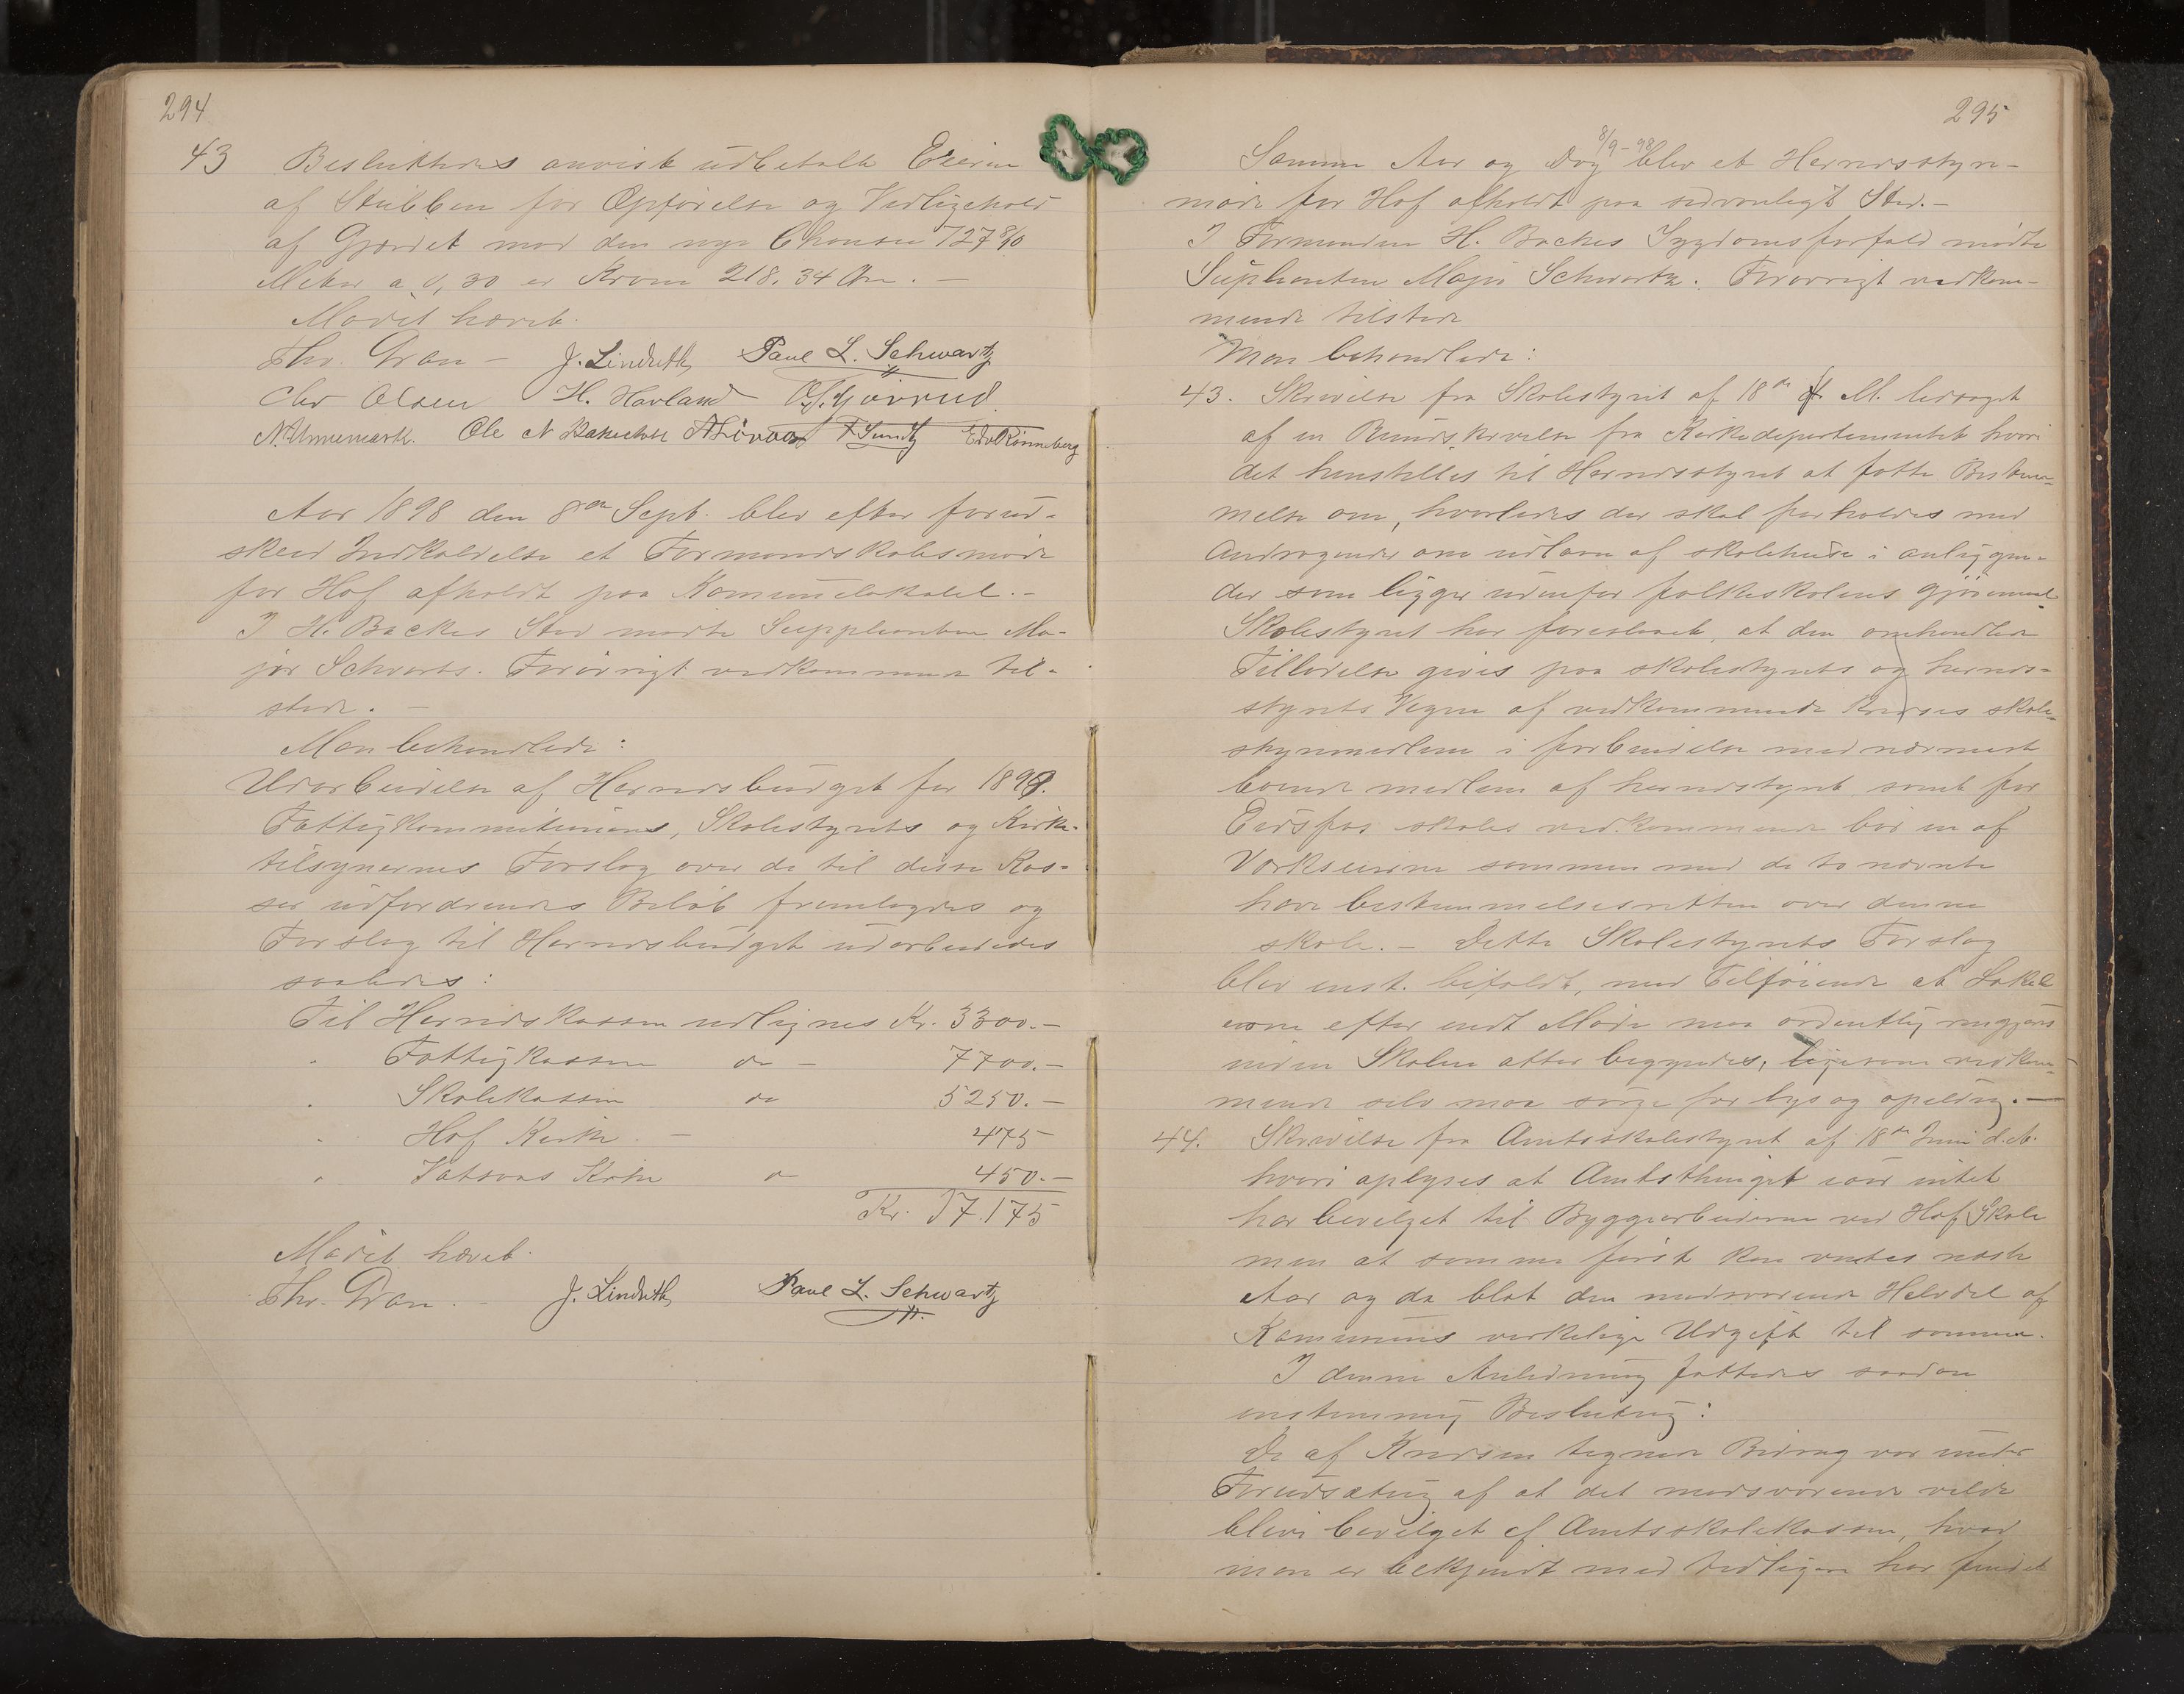 294
43 Besluttedes anvist udbetalt Eieren
af Stubben for Opførelse og Vedligehold
af Gjærdet mod den nye Chause 727 8/10
Meter a 0,30 er Kroner 218.34 Øre. —
Mødet hævet.
Thv. Gran — J. Lindseth Paul L. Schwartz
Chr Olsen H. Havland
N. Unnemark. Ole N F Sundt Edv Rønneberg
Aar 1898 den 8de Sept. blev efter forud-
skeed Indkaldelse et Formandskabsmøde
for Hof afholdt paa Kommunelokalet. –
I H. Backes Sted mødte Supplianten Ma-
jor Schvarts. Forøvrigt vedkommende til-
stede. —
Man behandlede:
Udarbeidelse af Herredsbudget for 1898.
Fattigkommitionens, Skolestyrets og Kirke-
tilsynernes Forslag over de til disse Kas-
ser udfordrendes Beløb fremlagdes og
Forslag til Herredsbudget udarbeidedes
saaledes:
Til Herredskassen udlignes Kr. 3300. —
" Fattigkassen do — 7700. —
" Skolekassen do 5250. —
" Hof Kirke. — 475
" Vatsaas Kirke do 450. —
Kr. 17.175
Mødet hævet.
Thv. Gran. — J. Lindseth Paul L. Schwartz
295
8/9 – 98
Samme Aar og Dag blev et Herredsstyre-
møde for Hof afholdt paa sedvanligt Sted. —
I Formanden H. Backes Sygdomsforfald mødte
Suplianten Major Schwartz. Forøvrigt vedkom-
mende tilstede
Man behandlede:
43. Skrivelse fra Skolestyret af 18de f. M. ledsaget
af en Rundskrivelse fra Kirkedepartementet hvori
det henstilles til Herredsstyret at fatte Bestem-
melse om, hvorledes der skal forholdes med
Andragender om udlaan af skolehuse i anliggen-
der som ligger udenfor folkeskolens gjøremaal
Skolestyret har foreslaaet, at den omhandlede
Tilladelse gives paa skolestyrets og herreds-
styrets Vegne af vedkommende Kredses skole-
styremedlem i forbindelse med nærmest
boende medlem af herredstyret samt for
Eidsfos skoles vedkommende bør en af
Værkseierne sammen med de to nævnte
have bestemmelsesretten over denne
skole. — Dette Skolestyrets Forslag
blev enst. bifaldt, med Tilføiende at Lokal
erne efter endt Møde maa ordentlig rengjøres
inden Skolen atter begyndes, ligesom vedkom-
mende selv maa sørge for lys og opelding. —
44. Skrivelse fra Amtsskolestyret af 18de Juni d. A.
hvori oplyses at Amtsthinget iaar intet
har bevilget til Byggearbeiderne ved Hof Skole
men at samme først kan ventes næste
Aar og da blot den modsvarende Halvdel af
Kommunens virkelige Udgift til samme.
I denne Anledning fattedes saadan
enstemmig Beslutning:
De af Kredsen tegnede Bidrag var under
Forudsætning af at det modsvarende vilde
blive bevilget af Amtsskolekassen, hvad
man er bekjendt med tidligere har fundet